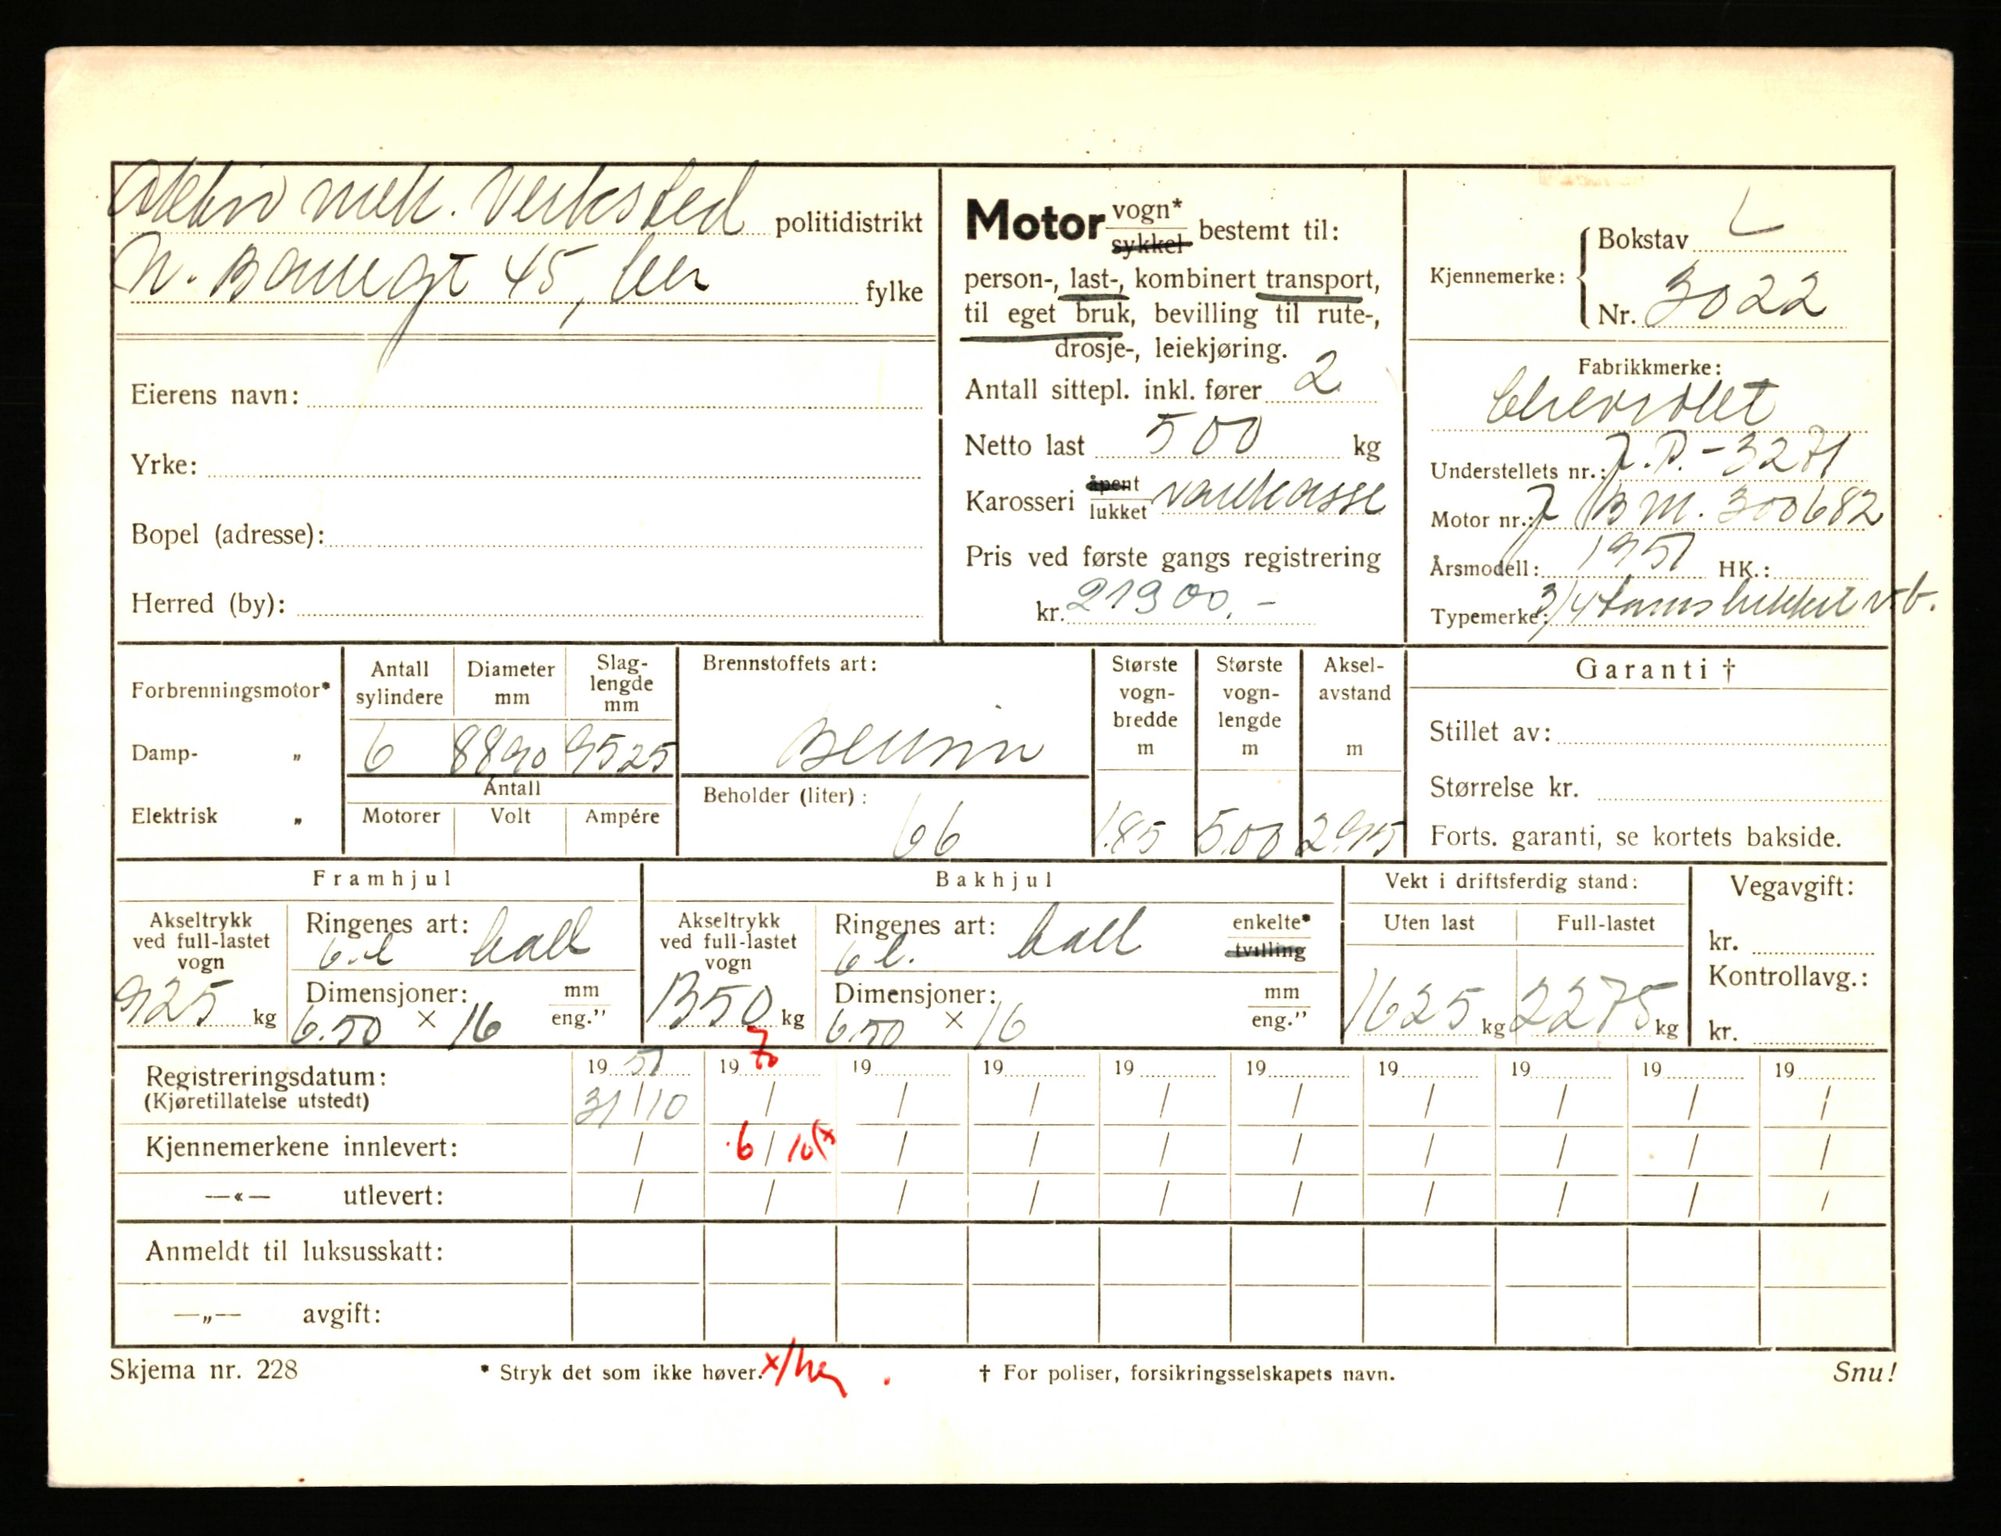 Aktiv mek. Verksted politidistrikt
N. Banegt 45, her fylke
Eierens navn:
Yrke:
Bopel (adresse):
Herred (by):
Motor vogn* sykkel bestemt til:
person-, last-, kombinert transport,
til eget bruk, bevilling til rute-,
drosje-, leiekjøring.
Antall sittepl. inkl. fører 2
Netto last 500 kg
Karosseri åpent lukket varekasse
Pris ved første gangs registrering
kr. 21900,-
Kjennemerke: Bokstav L
Nr. 3022
Fabrikkmerke:
Chevrolet
Understellets nr.: J.P.-3271
Motor nr.: J B M. 300682
Årsmodell: 1951 HK.:
Typemerke: 3/4 tonns lukket v.b.
Forbrenningsmotor*
Damp- „
Elektrisk „
Antall sylindere
Diameter mm
Slag-lengde mm
6 8890 9525
Antall
Motorer Volt Ampére
Brennstoffets art:
Bensin
Beholder (liter): 66
Største vogn-bredde m
1.85
Største vogn-lengde m
5.00
Aksel-avstand m
2.945
Garanti †
Stillet av:
Størrelse kr.
Forts. garanti, se kortets bakside.
Framhjul
Akseltrykk ved full-lastet vogn
925 kg
Ringenes art: 6.l ball
Dimensjoner: mm eng."
6.50 × 16
Bakhjul
Akseltrykk ved full-lastet vogn
1350 kg
Ringenes art: 6 l. ball enkelte* tvilling
Dimensjoner: mm eng."
6.50 × 16
Vekt i driftsferdig stand:
Uten last Full-lastet
1625 kg 2275 kg
Vegavgift:
kr.
Kontrollavg.:
kr.
Registreringsdatum: 19 51 19 70 19 19 19 19 19 19 19 19
(Kjøretillatelse utstedt) 31/10 / / / / / / / / /
Kjennemerkene innlevert: / 6/10(x / / / / / / / /
—«— utlevert: / / / / / / / / / /
Anmeldt til luksusskatt:
—„— avgift:
Skjema nr. 228
* Stryk det som ikke høver. x/
† For poliser, forsikringsselskapets navn.
Snu!